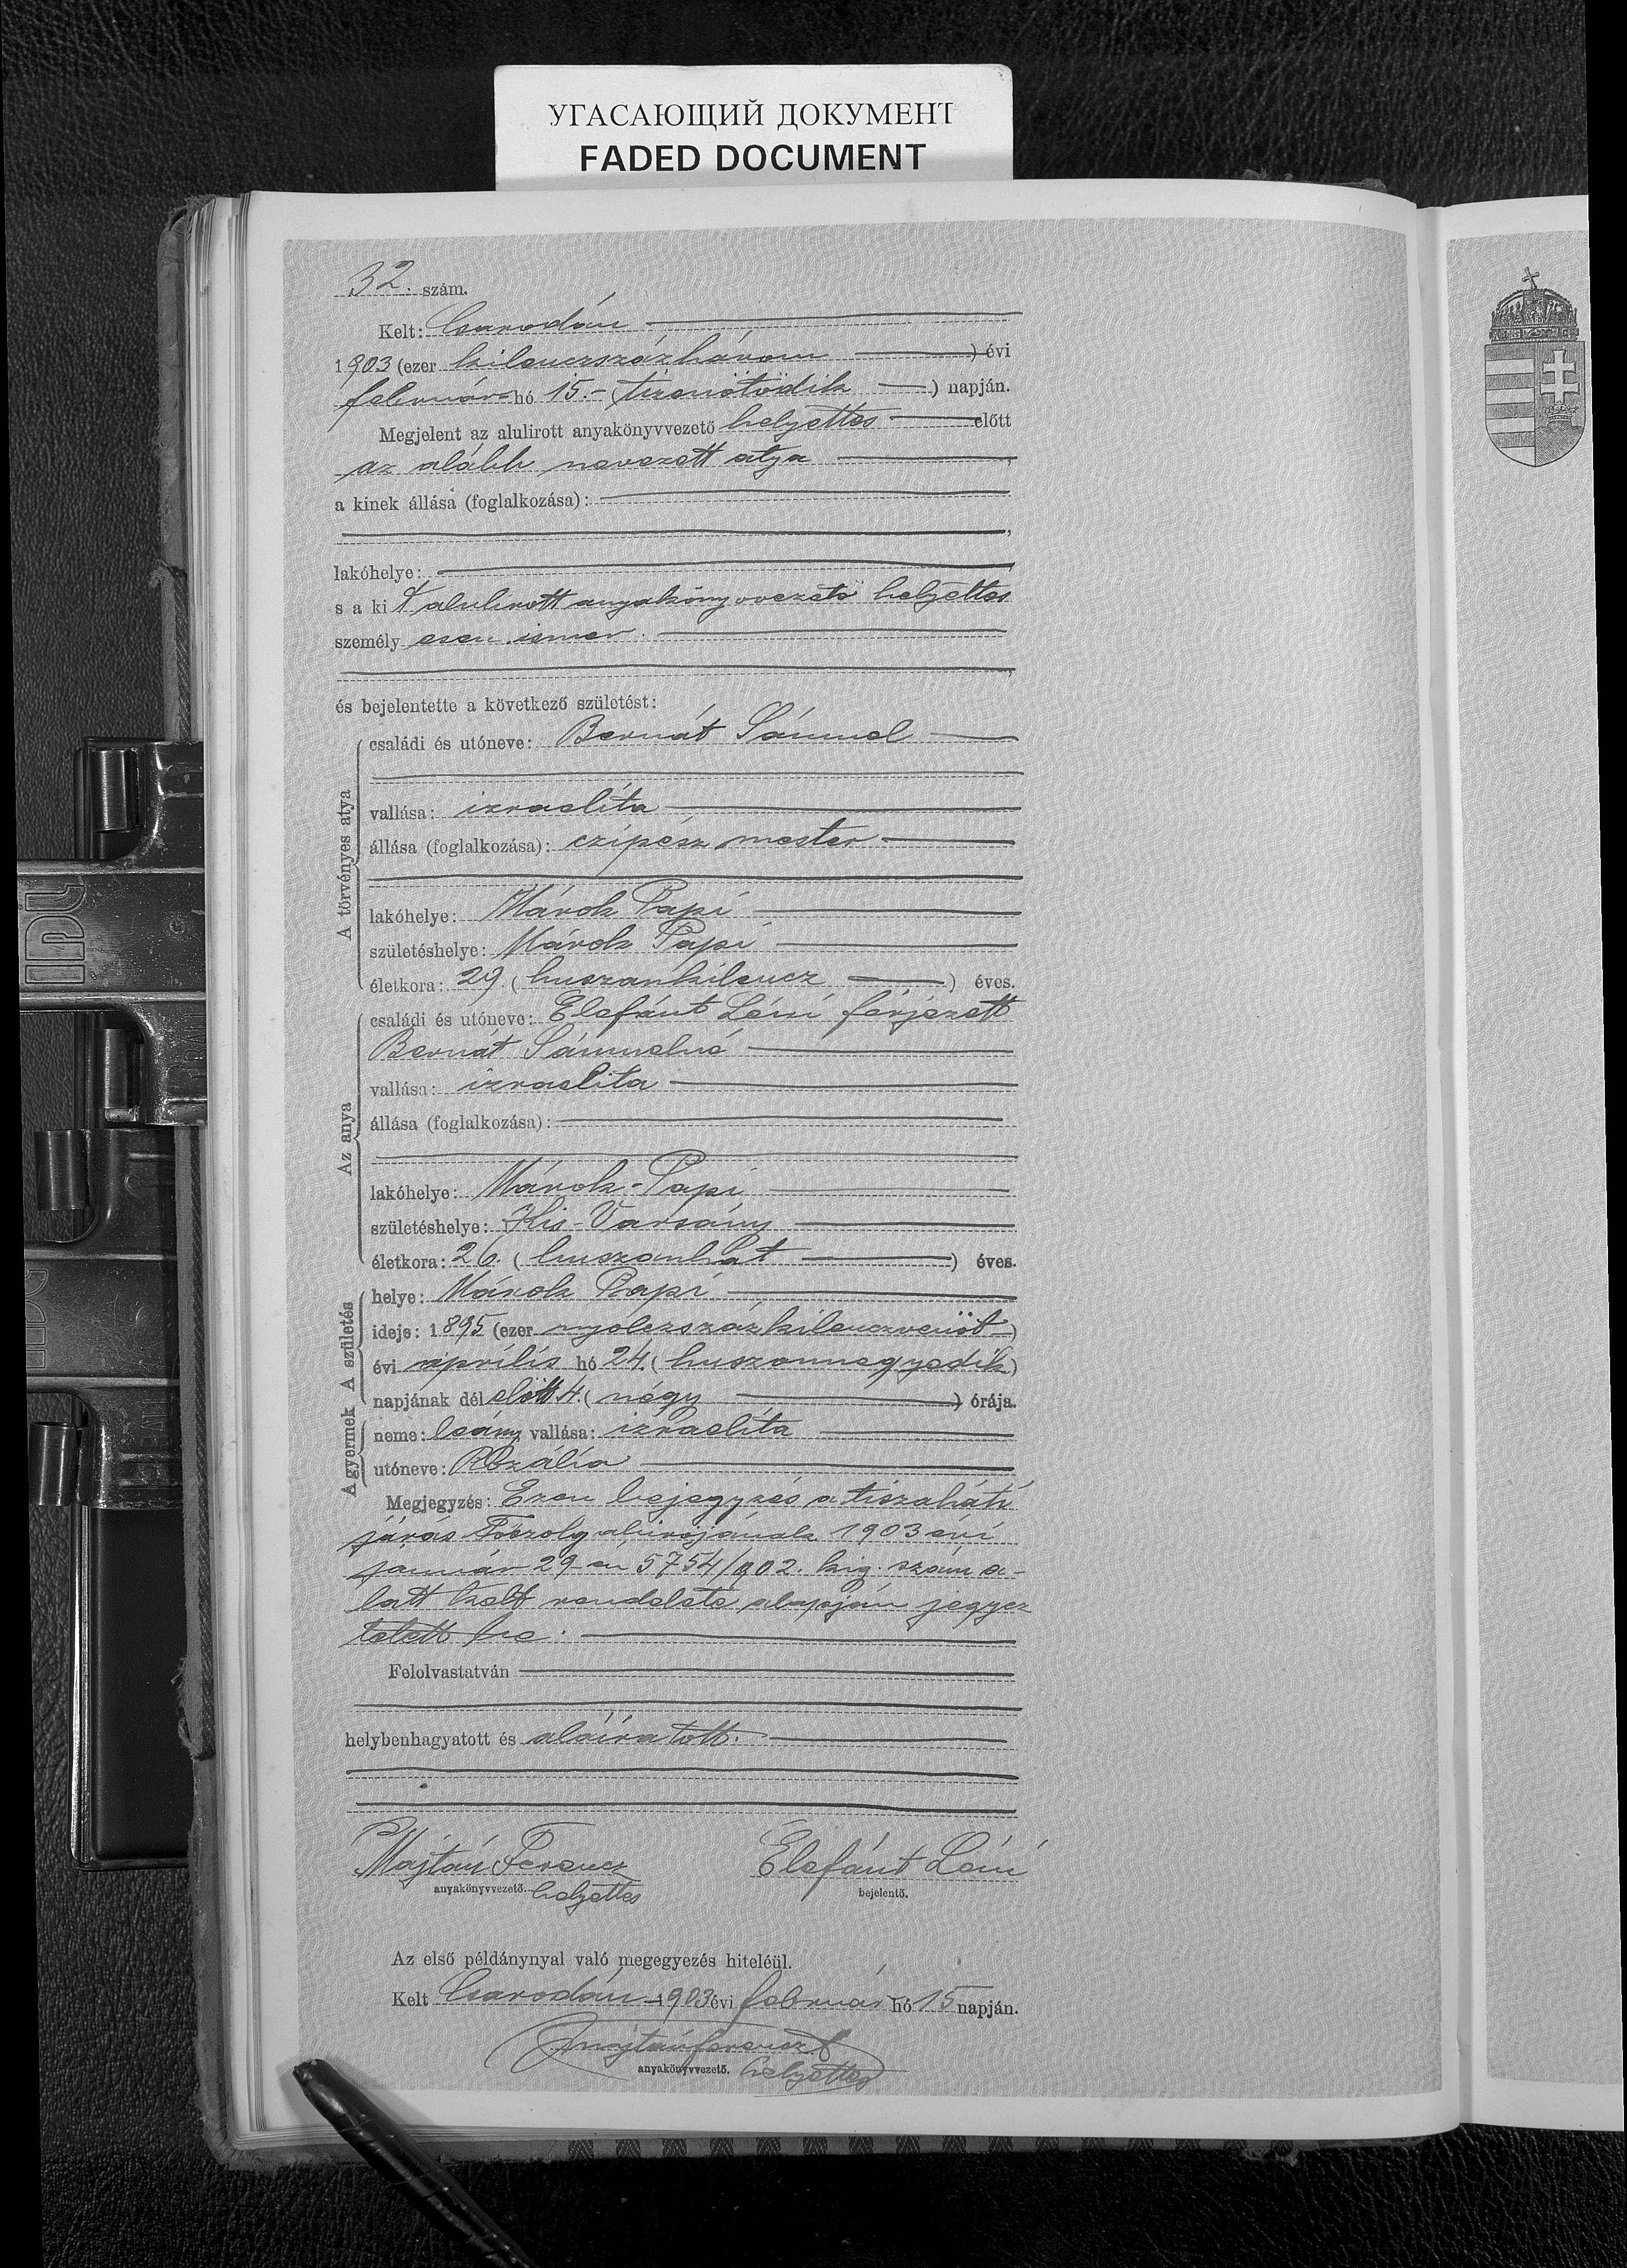 УГАСАЮЩИЙ ДОКУМЕНТ
FADED DOCUMENT
32. szám.
Kelt: Csarodán
1903 (ezer kilenczszázhárom) évi
február hó 15.- (tizenötödik) napján.
Megjelent az alulirott anyakönyvvezető helyettes előtt
az alább nevezett atya,
a kinek állása (foglalkozása):
lakóhelye:
s a kit alulirott anyakönyvvezető helyettes
személyesen ismer
és bejelentette a következő születést:
A törvényes atya
családi és utóneve: Bernát Sámuel
vallása: izraelita
állása (foglalkozása): czipész mester
lakóhelye: Márok Papi
születéshelye: Márok Papi
életkora: 29. (huszonkilencz) éves.
Az anya
családi és utóneve: Elefánt Léni férjezett
Bernát Sámuelné
vallása: izraelita
állása (foglalkozása):
lakóhelye: Márok-Papi
születéshelye: Kis-Varsány
életkora: 26. (huszonhat) éves.
A gyermek A születés
helye: Márok Papi
ideje: 1895 (ezer nyolczszázkilenczvenöt)
évi április hó 24. (huszonnegyedik)
napjának dél előtt 4. (négy) órája.
neme: leány vallása: izraelita
utóneve: Rozália
Megjegyzés: Ezen bejegyzés a tiszaháti
járás Főszolgabirójának 1903 évi
január 29-én 5754/902. kig. szám a-
latt kelt rendelete alapján jegyez
tetett be.
Felolvastatván
helybenhagyatott és aláiratott.
Majtán Ferencz
anyakönyvvezető helyettes
Elefánt Léni
bejelentő.
Az első példánynyal való megegyezés hiteléül.
Kelt Csarodán 1903 évi február hó 15 napján.
Majtán Ferencz
anyakönyvvezető. helyettes